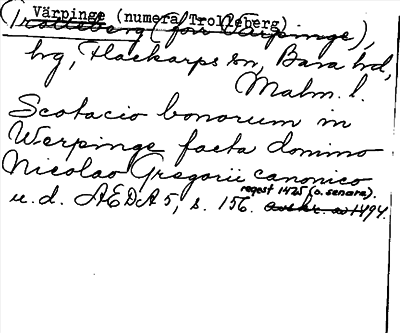 Värpinge (numera Trolleberg)
Trolleberg (förr Värpinge),
hg, Flackarps sn, Bara hd,
Malm. l.
Scotacio bonorum in
Werpinge facta domino
Nicolao Gregorii canonico
regest 1425 (o. senare).
u. d. ÆDA 5, s. 156. avskr. av 1494.